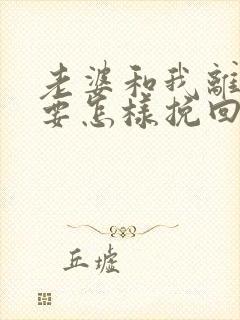 老婆和我離
要怎樣挽回
丘墟